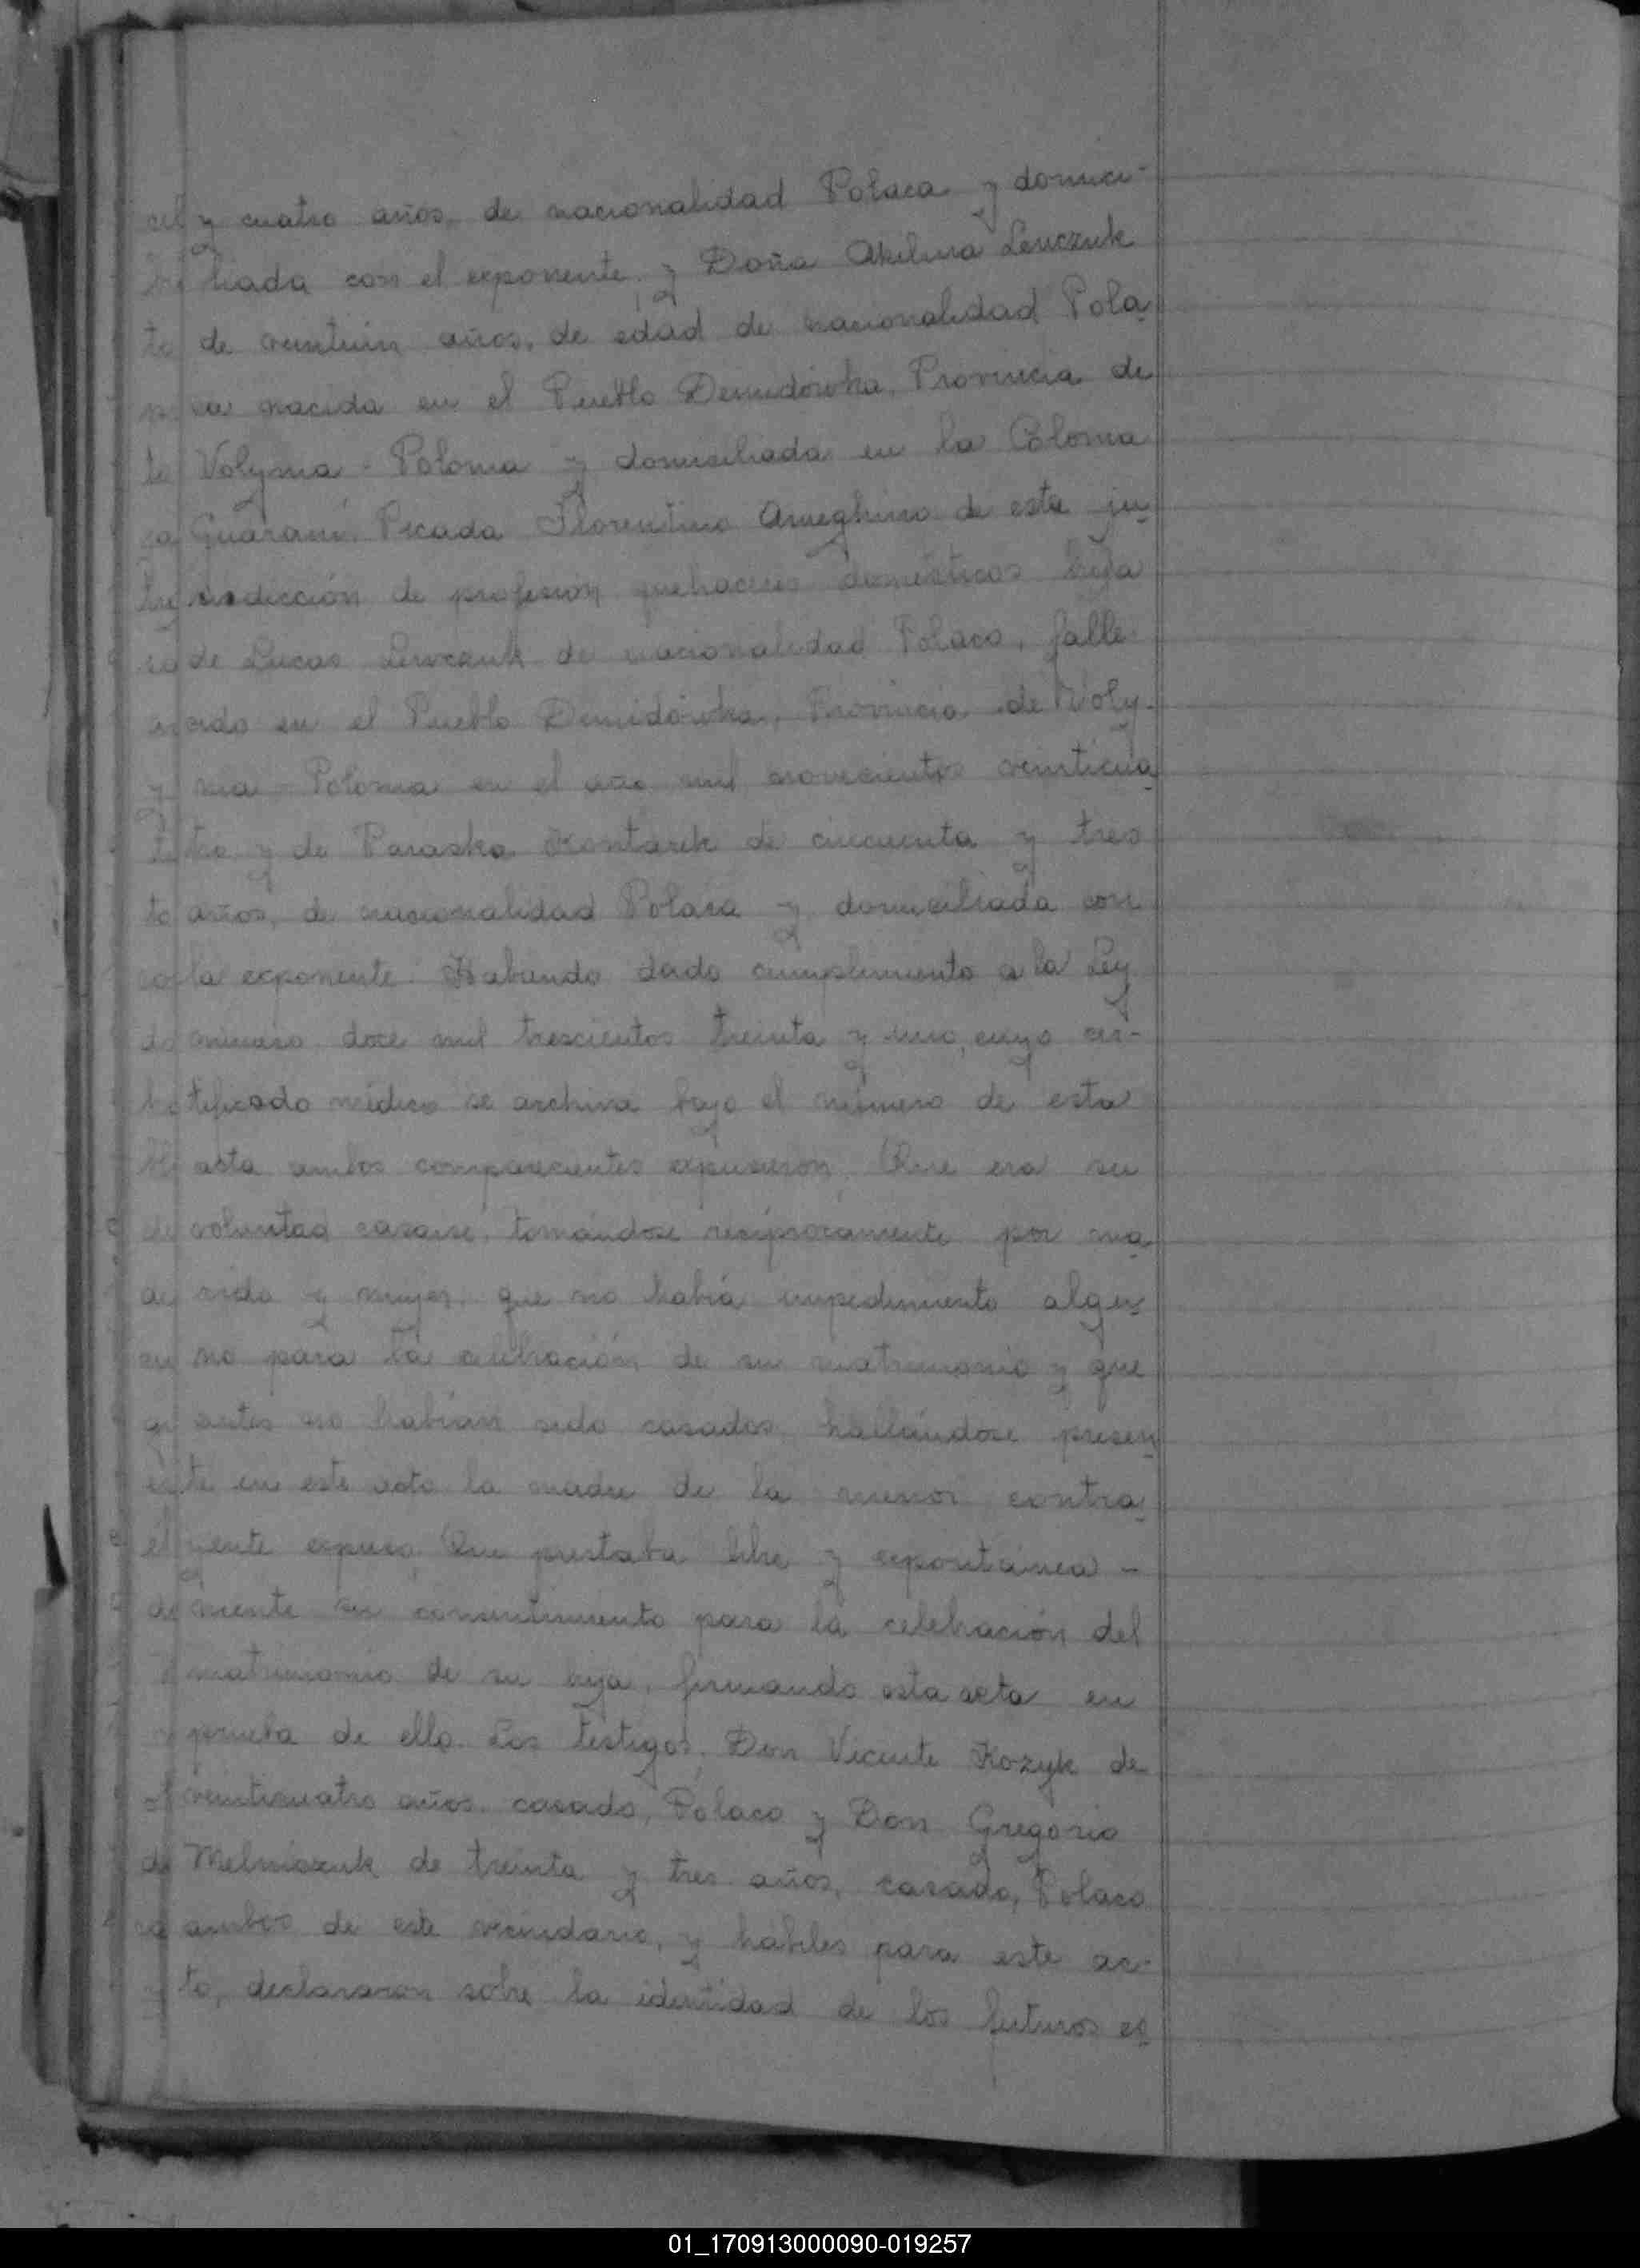 y cuatro años, de nacionalidad Polaca y domici-
liada con el exponente, y Doña Akilina Lewczuk
de veintiún años, de edad de nacionalidad Pola
ca nacida en el Pueblo Demidówka, Provincia de
Volynia - Polonia y domiciliada en la Colonia
Guaraní Picada Florentino Ameghino de esta ju
risdicción de profesión quehaceres domésticos hija
de Lucas Lewczuk de nacionalidad Polaco, falle
cido en el Pueblo Demidówka, Provincia de Woly-
nia - Polonia en el año mil novecientos veinticua
tro y de Paraska de cincuenta y tres
años, de nacionalidad Polaca y domiciliada con
la exponente. Habiendo dado cumplimiento a la Ley
número doce mil trescientos treinta y uno, cuyo cer-
tificado médico se archiva bajo el número de esta
acta ambos comparecientes expusieron. Que era su
voluntad casarse, tomándose recíprocamente por ma
rido y mujer, que no había impedimento algu
no para la celebración de su matrimonio y que
antes no habían sido casados, hallándose presen
te en este acto la madre de la menor contra
yente expuso, Que prestaba libre y espontánea -
mente su consentimiento para la celebración del
matrimonio de su hija, firmando esta acta en
prueba de ello. Los testigos, Don Vicente Kozyk de
veinticuatro años, casado, Polaco y Don Gregorio
Melniczuk de treinta y tres años, casado, Polaco
ambos de este vecindario, y hábiles para este ac-
to, declararon sobre la identidad de los futuros es
01_170913000090-019257